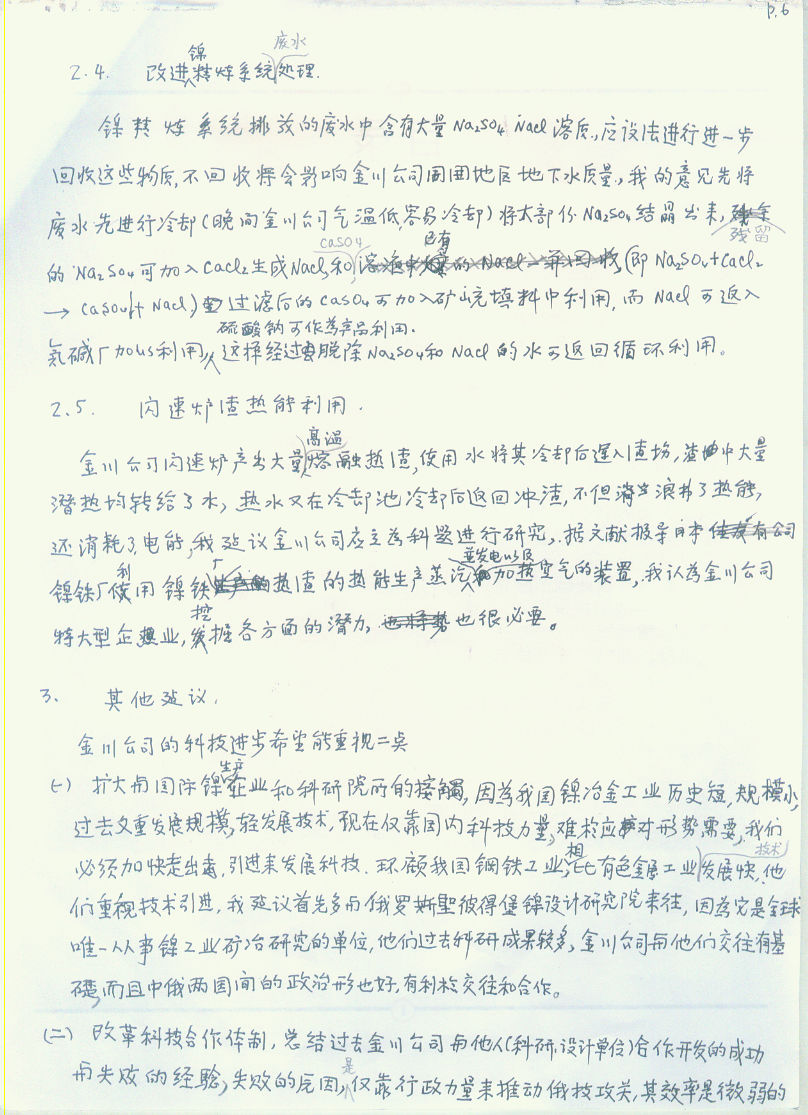 P.6
2.4. 改进镍精炼系统废水处理.
镍精炼系统排放的废水中含有大量Na₂SO₄ NaCl溶质,应设法进行进一步
回收这些物质,不回收将会影响金川公司周围地区地下水质量,我的意见先将
废水先进行冷却(晚间金川公司气温低,容易冷却)将大部份Na₂SO₄结晶出来,残留
的Na₂SO₄可加入CaCl₂生成NaCl和CaSO₄(即Na₂SO₄+CaCl₂
→ CaSO₄↓+NaCl)过滤后的CaSO₄可加入矿山充填料中利用,而NaCl可返入
硫酸钠可作为产品利用.
氯碱厂加以利用,这择经过脱除Na₂SO₄和NaCl的水可返回循环利用。
2.5. 闪速炉渣热能利用.
金川公司闪速炉产出大量高温熔融热渣,使用水将其冷却后运入渣场,渣中大量
潜热均转给了水,热水又在冷却池冷却后返回冲渣,不但浪费了热能,
还消耗了电能,我建议金川公司应立为科题进行研究,据文献报导日本有公司
镍铁厂利用镍铁厂热渣的热能生产蒸汽并发电以及加热空气的装置,我认为金川公司
特大型企业,挖掘各方面的潜力也很必要。
3. 其他建议.
金川公司的科技进步希望能重视二点
(一) 扩大与国际镍生产企业和科研院所的接触,因为我国镍冶金工业历史短,规模小,
过去又重发展规模,轻发展技术,现在仅靠国内科技力量,难於应对形势需要,我们
必须加快走出去,引进来发展科技.环顾我国钢铁工业,相比有色金属工业技术发展快,他
们重视技术引进,我建议首先多与俄罗斯聖彼得堡镍设计研究院来往,因为它是全球
唯一从事镍工业矿冶研究的单位,他们过去科研成果较多,金川公司与他们交往有基
礎,而且中俄两国间的政治形也好,有利於交往和合作。
(二) 改革科技合作体制,总结过去金川公司与他人(科研.设计单位)合作开发的成功
与失败的经验,失败的原因是仅靠行政力量来推动俄技攻关,其效率是微弱的